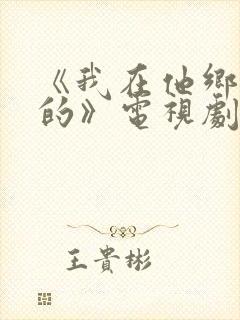 《我在他鄉
的》電視劇
王貴彬